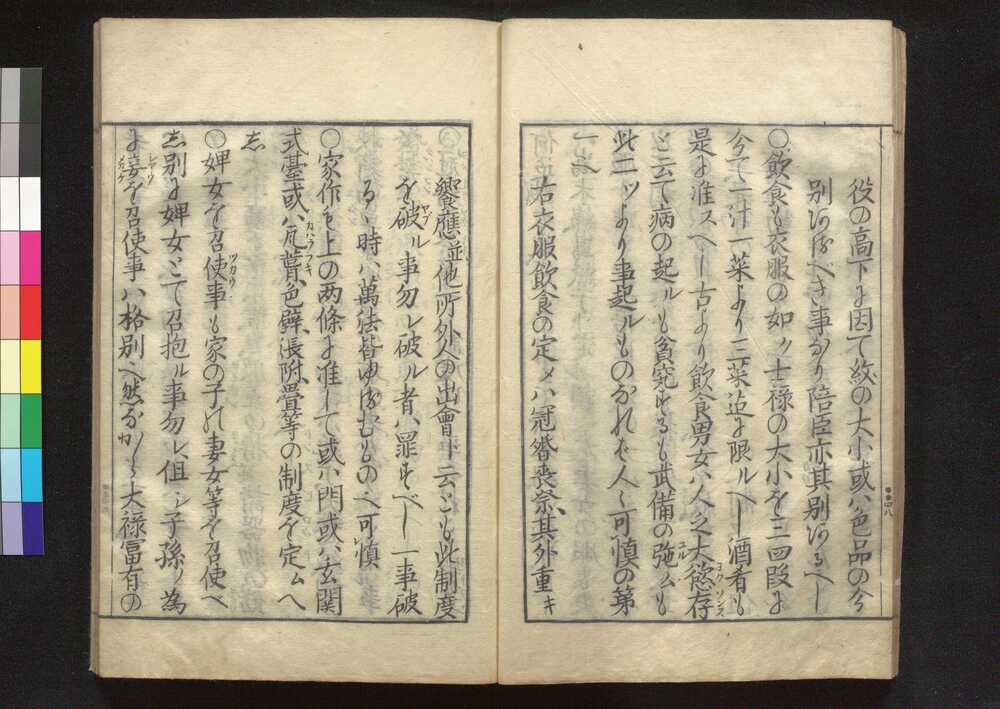 役の高下に因て紋の大小或ハ色品の分
別あるべき事なり陪臣亦其別あるへし
〇飲食も衣服の如ッ士禄の大小を三四段に
分て一汁一菜より三菜迄に限ルヘし酒肴も
是に准スヘし古より飲食男女ハ人之大慾存
と云て病の起ルも貧究するも武備の弛ムも
此二ツより事起ルものなれは人々可慎の第
一也
右衣服飲食の定メハ冠婚喪祭其外重キ
饗應並他所外人の出會ト云とも此制度
を破ル事勿レ破ル者ハ罪すべし一事破
るゝ時ハ萬法皆ゆるむもの也可慎
〇家作も上の両條に准して或ハ門或ハ玄関
式臺或ハ瓦葺色壁張附畳等の制度を定ムヘ
し
〇婢女を召使事も家の子の妻女等を召使へ
し別に婢女とて召抱ル事勿レ但シ子孫ノ為
に妾を召使事ハ格別也然なから大禄冨有の